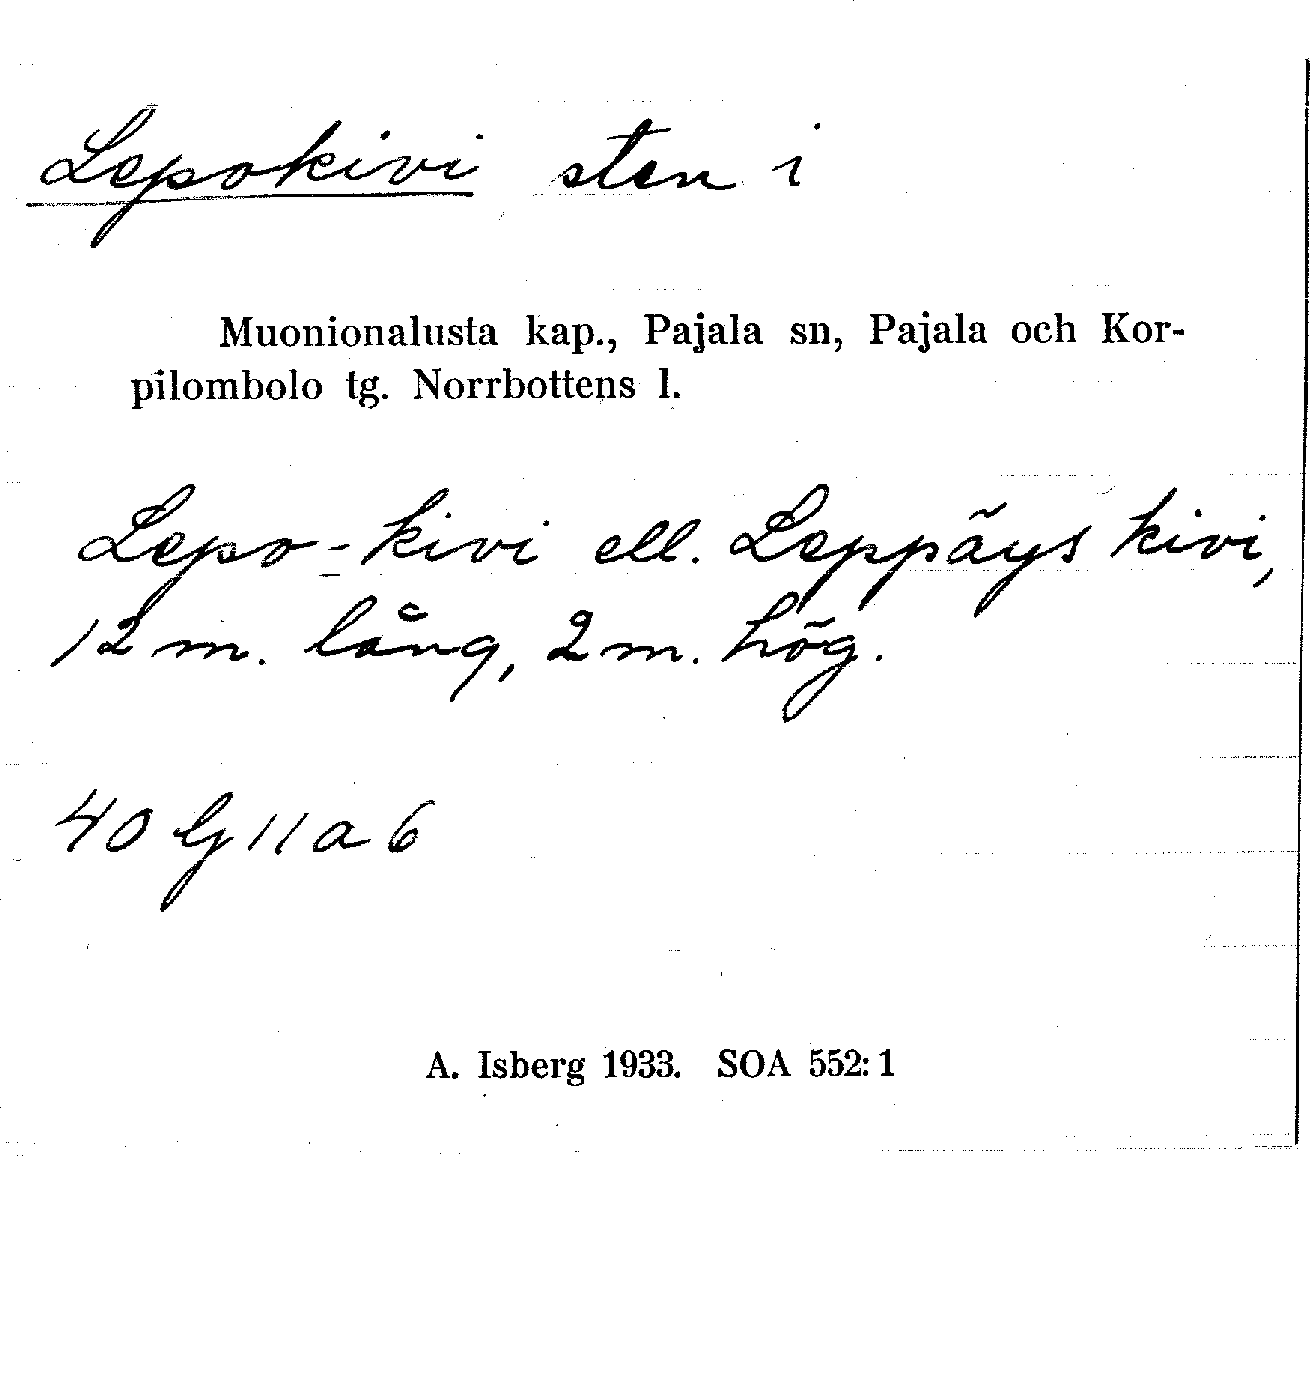 Lepokivi sten i
Muonionalusta kap., Pajala sn, Pajala och Kor-
pilombolo tg. Norrbottens l.
Lepo-kivi ell. Leppäys kivi,
12 m. lång, 2 m. hög.
40 G 11 a 6
A. Isberg 1933. SOA 552:1